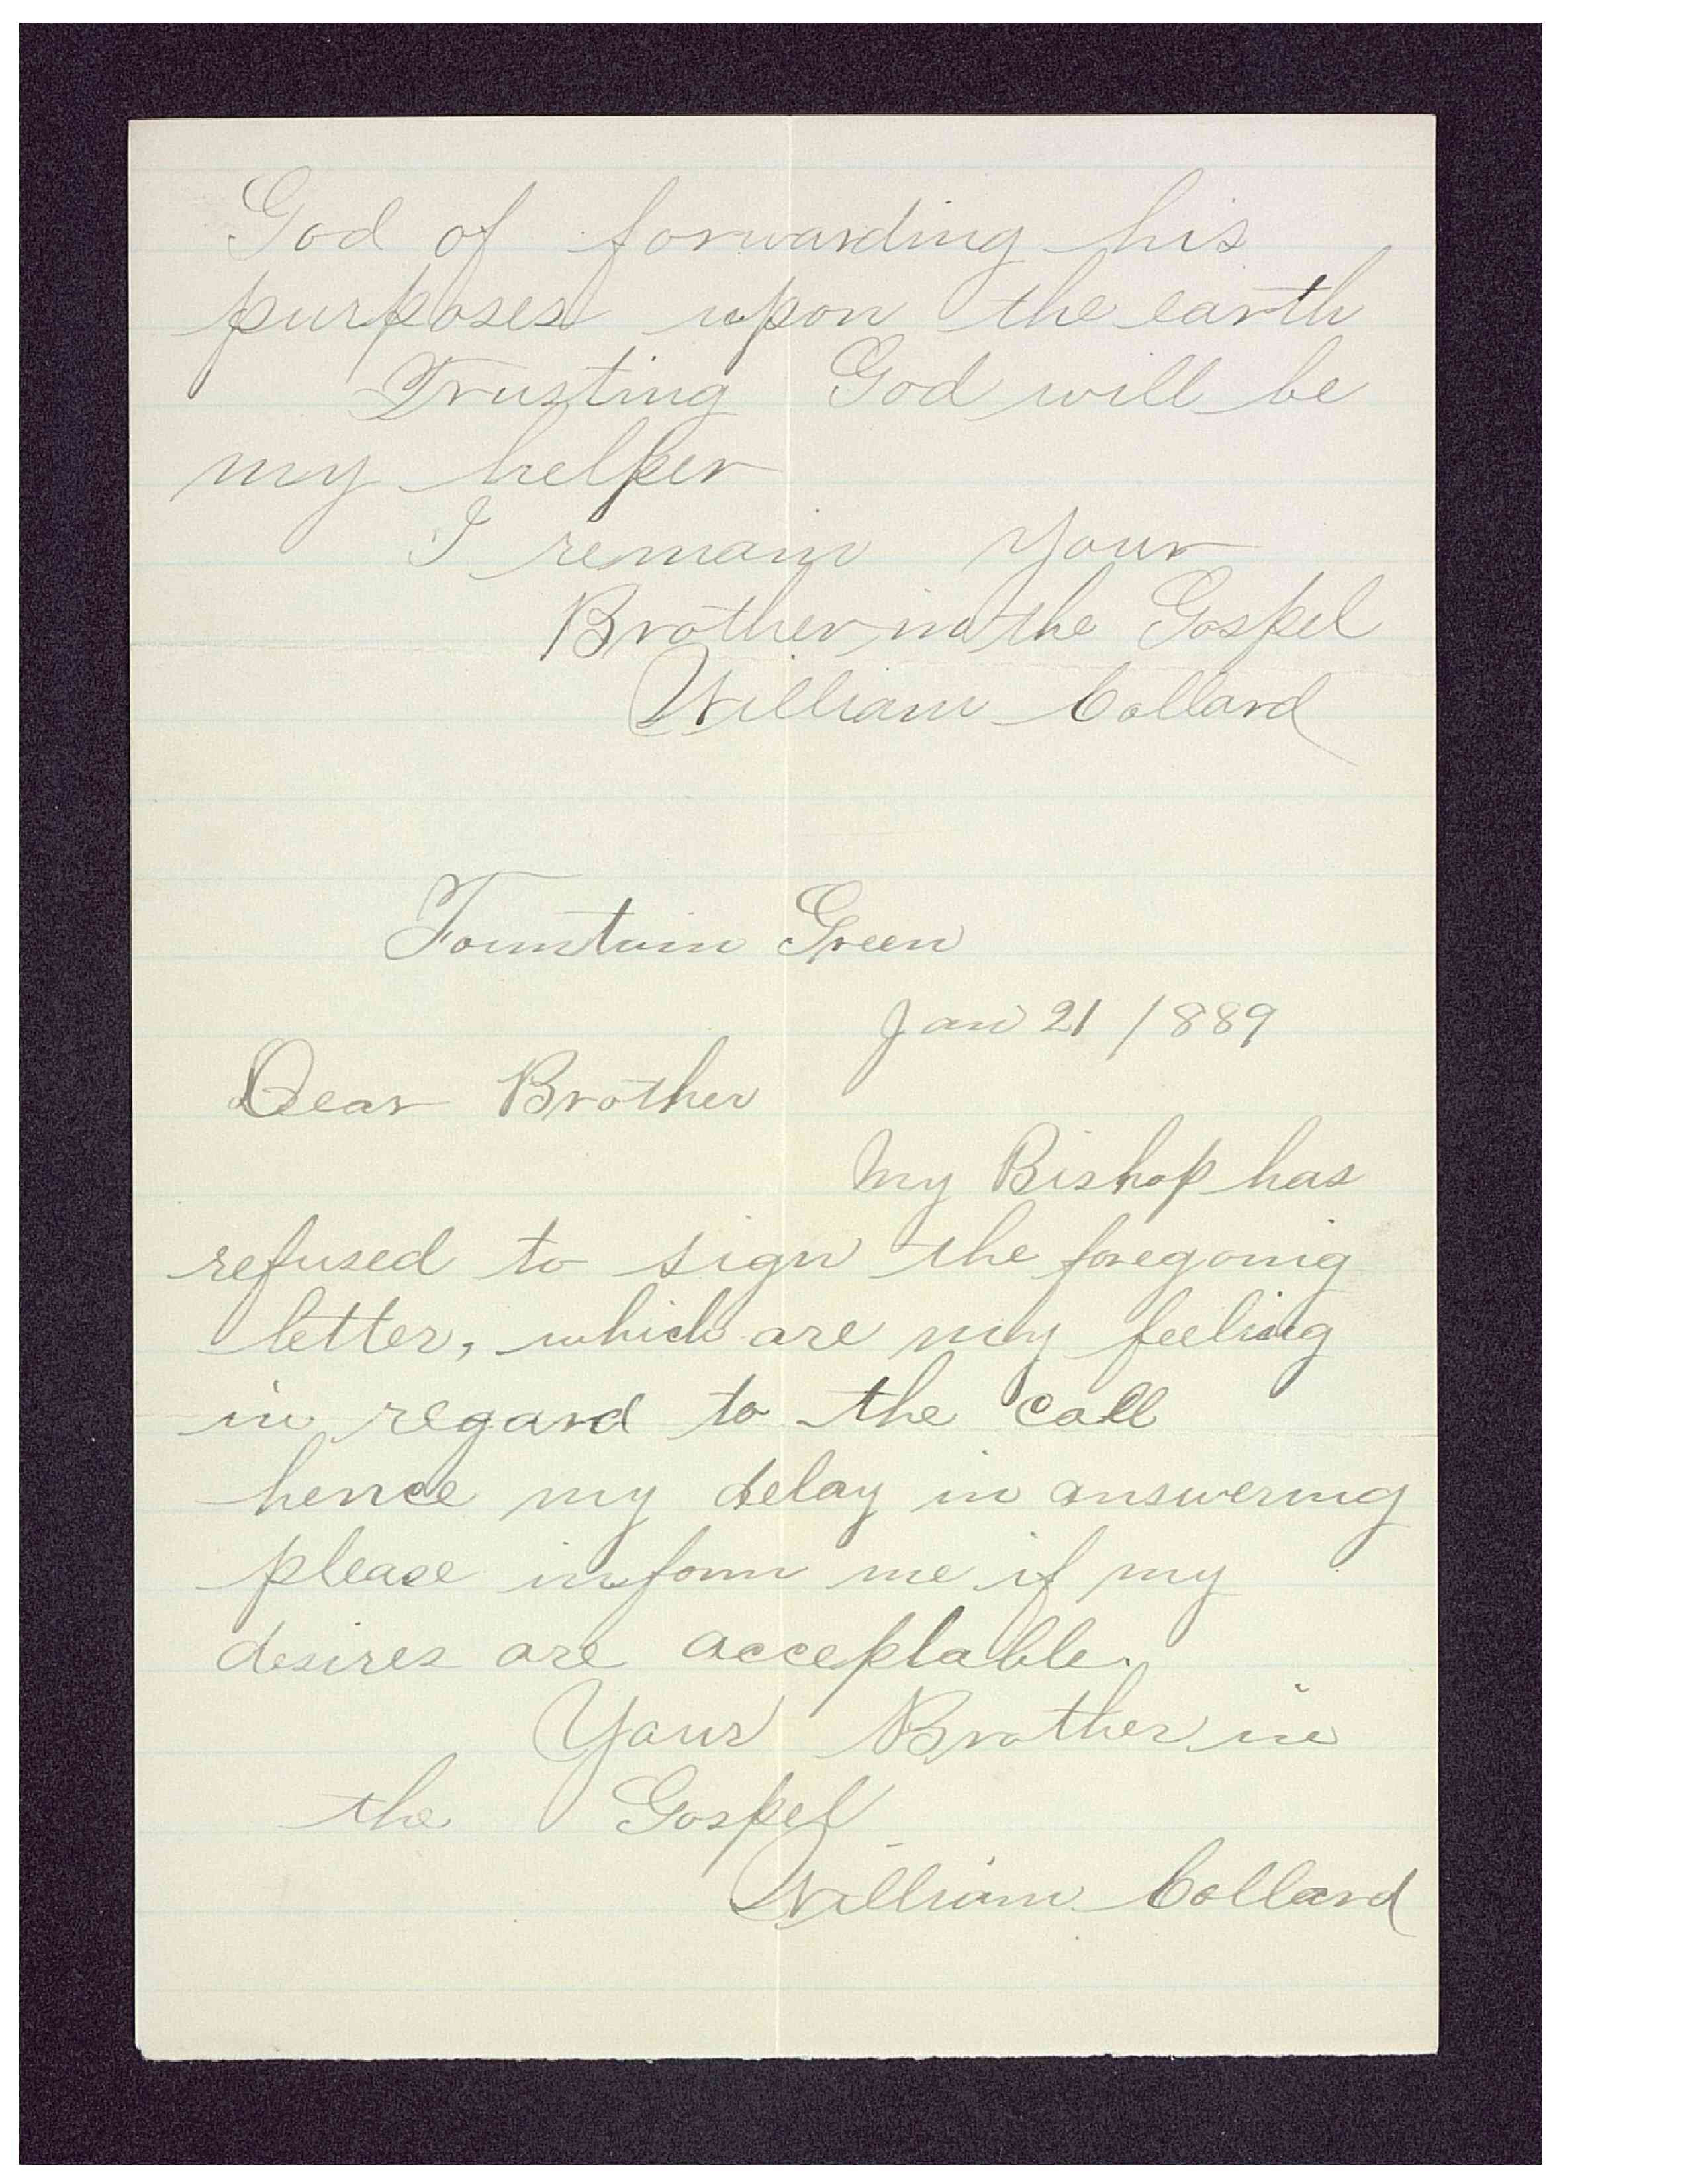 God of forwarding his
purposes upon the earth
Trusting God will be
my helper
I remain your
Brother in the Gospel
William Collard
Fountain Green
Jan 21 1889
Dear Brother
My Bishop has
refused to sign the foregoing
letter, which are my feeling
in regard to the call
hence my delay in answering
please inform me if my
desires are acceptable.
Your Brother in
the Gospel
William Collard